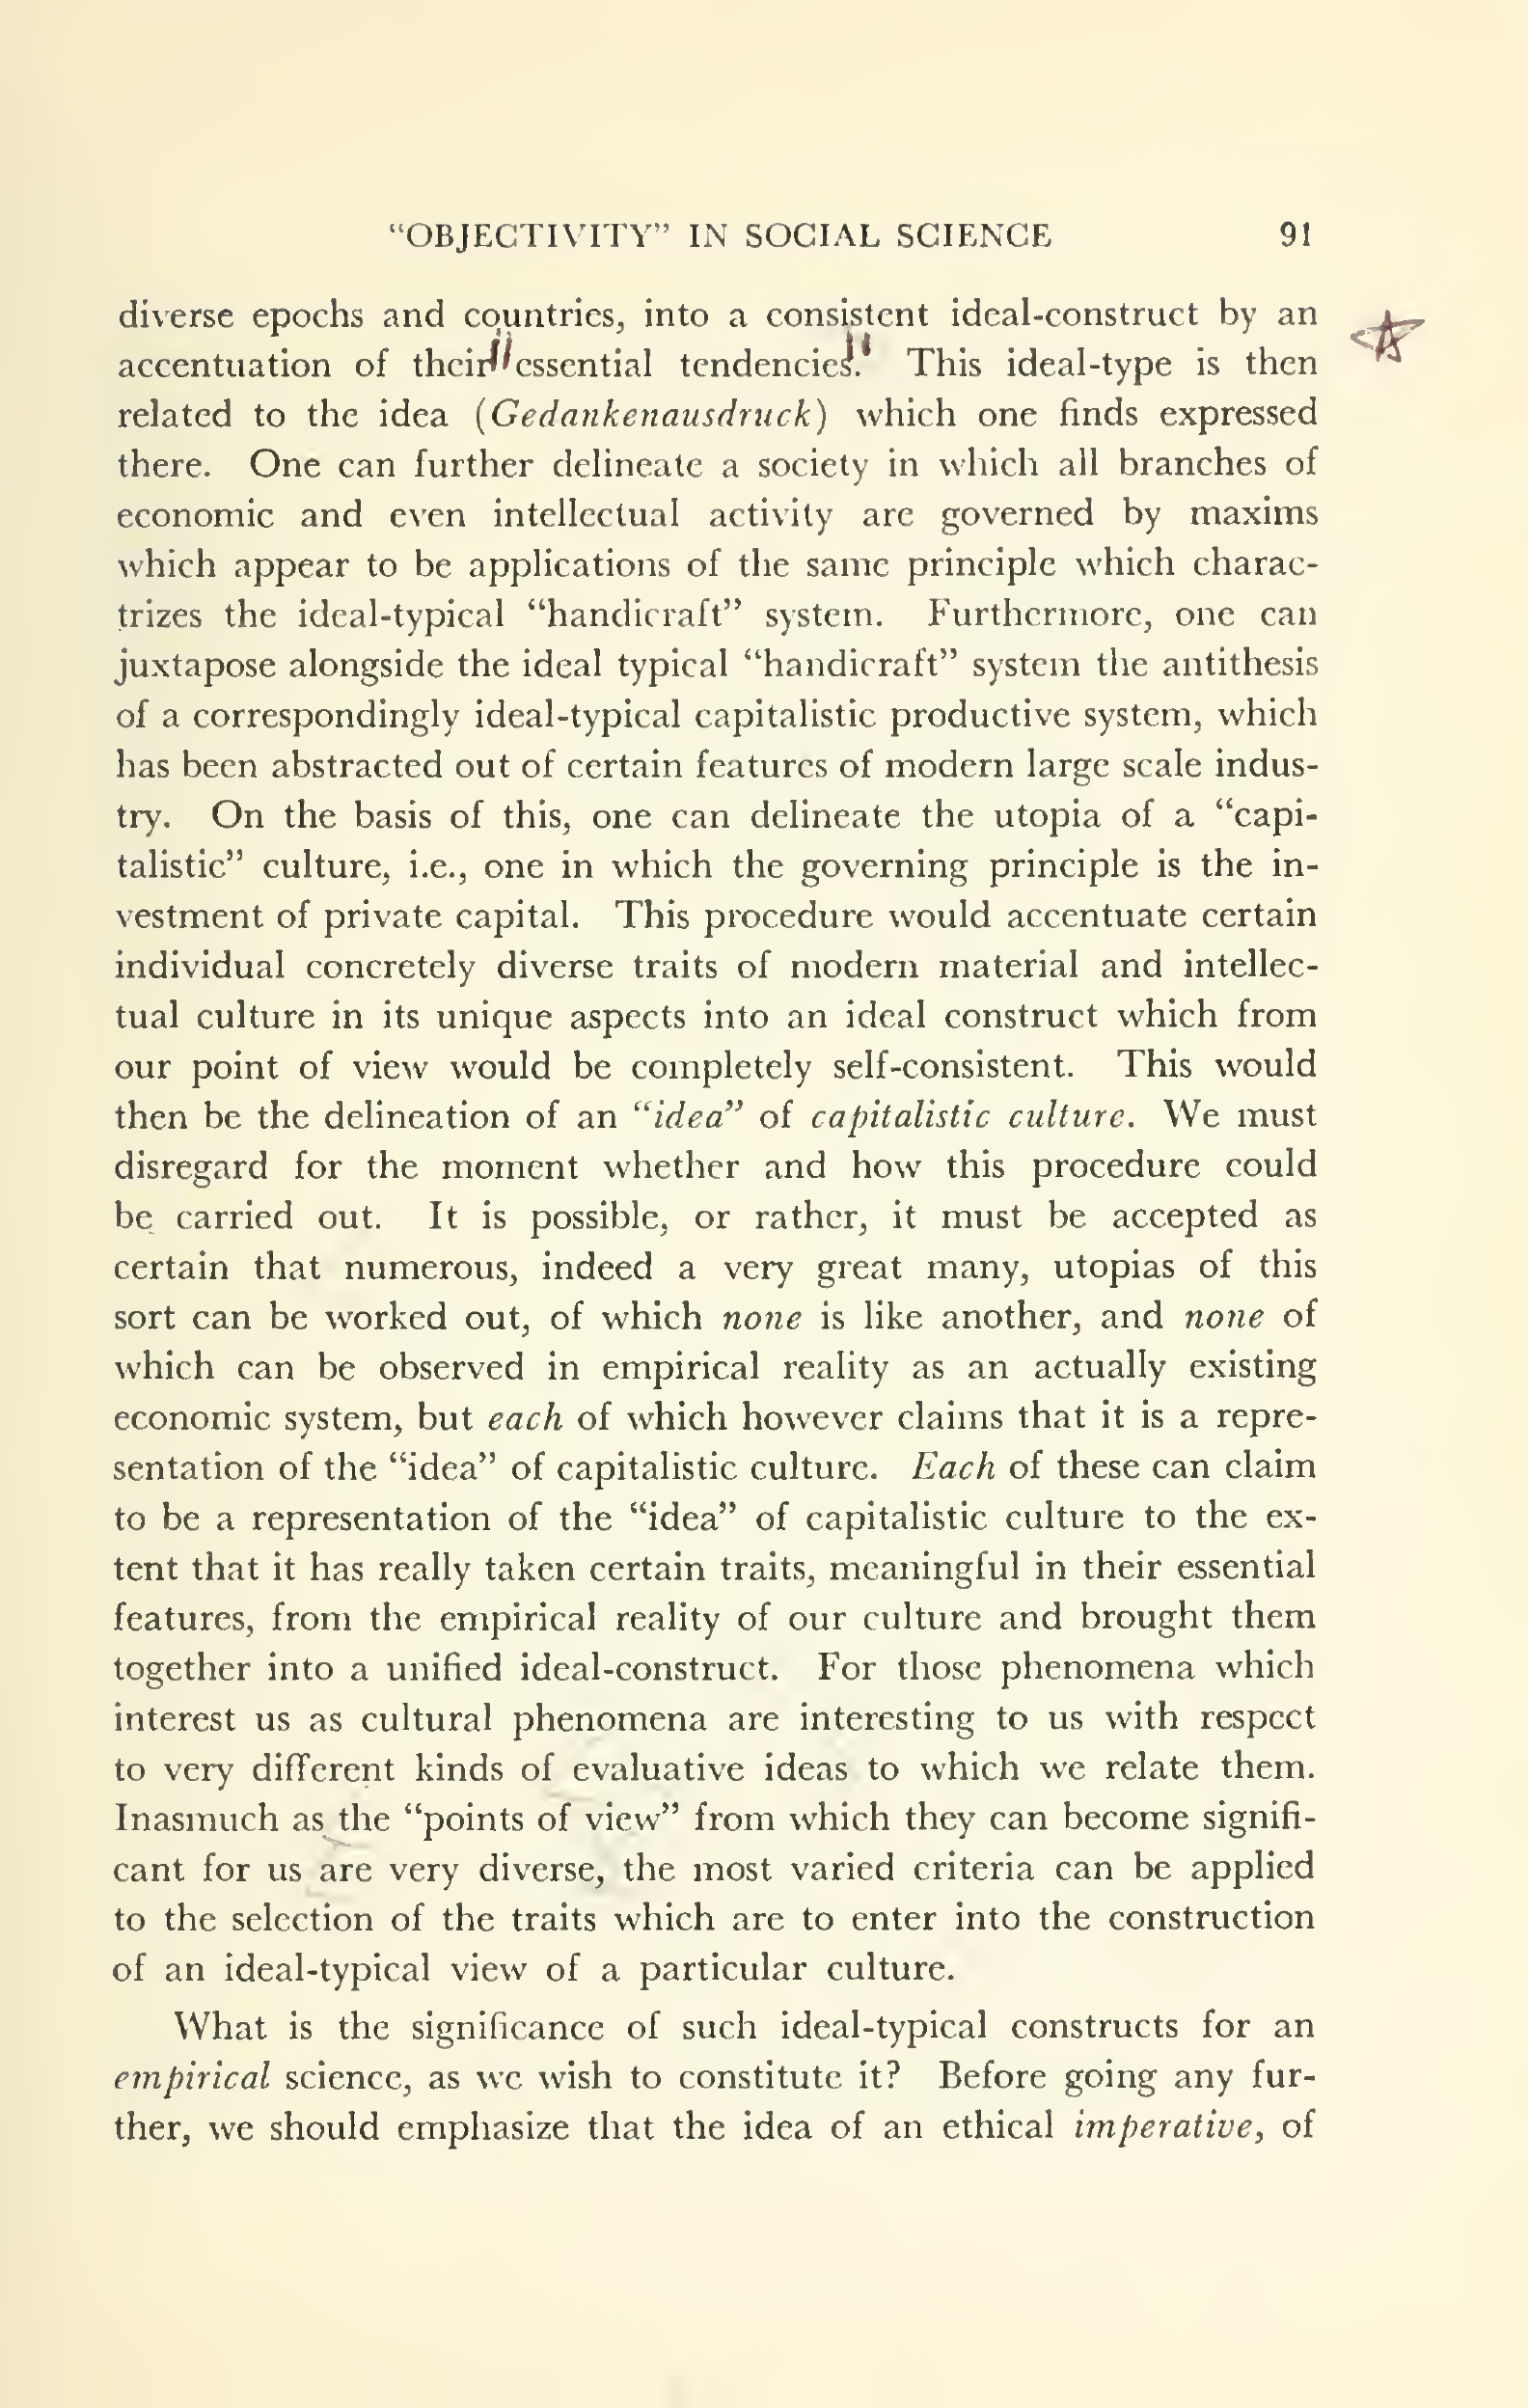 “OBJECTIVITY” IN SOCIAL SCIENCE 91
diverse epochs and countries, into a consistent ideal-construct by an
accentuation of their "essential tendencies." This ideal-type is then
related to the idea (Gedankenausdruck) which one finds expressed
there. One can further delineate a society in which all branches of
economic and even intellectual activity are governed by maxims
which appear to be applications of the same principle which charac-
trizes the ideal-typical “handicraft” system. Furthermore, one can
juxtapose alongside the ideal typical “handicraft” system the antithesis
of a correspondingly ideal-typical capitalistic productive system, which
has been abstracted out of certain features of modern large scale indus-
try. On the basis of this, one can delineate the utopia of a “capi-
talistic” culture, i.e., one in which the governing principle is the in-
vestment of private capital. This procedure would accentuate certain
individual concretely diverse traits of modern material and intellec-
tual culture in its unique aspects into an ideal construct which from
our point of view would be completely self-consistent. This would
then be the delineation of an “idea” of capitalistic culture. We must
disregard for the moment whether and how this procedure could
be carried out. It is possible, or rather, it must be accepted as
certain that numerous, indeed a very great many, utopias of this
sort can be worked out, of which none is like another, and none of
which can be observed in empirical reality as an actually existing
economic system, but each of which however claims that it is a repre-
sentation of the “idea” of capitalistic culture. Each of these can claim
to be a representation of the “idea” of capitalistic culture to the ex-
tent that it has really taken certain traits, meaningful in their essential
features, from the empirical reality of our culture and brought them
together into a unified ideal-construct. For those phenomena which
interest us as cultural phenomena are interesting to us with respect
to very different kinds of evaluative ideas to which we relate them.
Inasmuch as the “points of view” from which they can become signifi-
cant for us are very diverse, the most varied criteria can be applied
to the selection of the traits which are to enter into the construction
of an ideal-typical view of a particular culture.
What is the significance of such ideal-typical constructs for an
empirical science, as we wish to constitute it? Before going any fur-
ther, we should emphasize that the idea of an ethical imperative, of